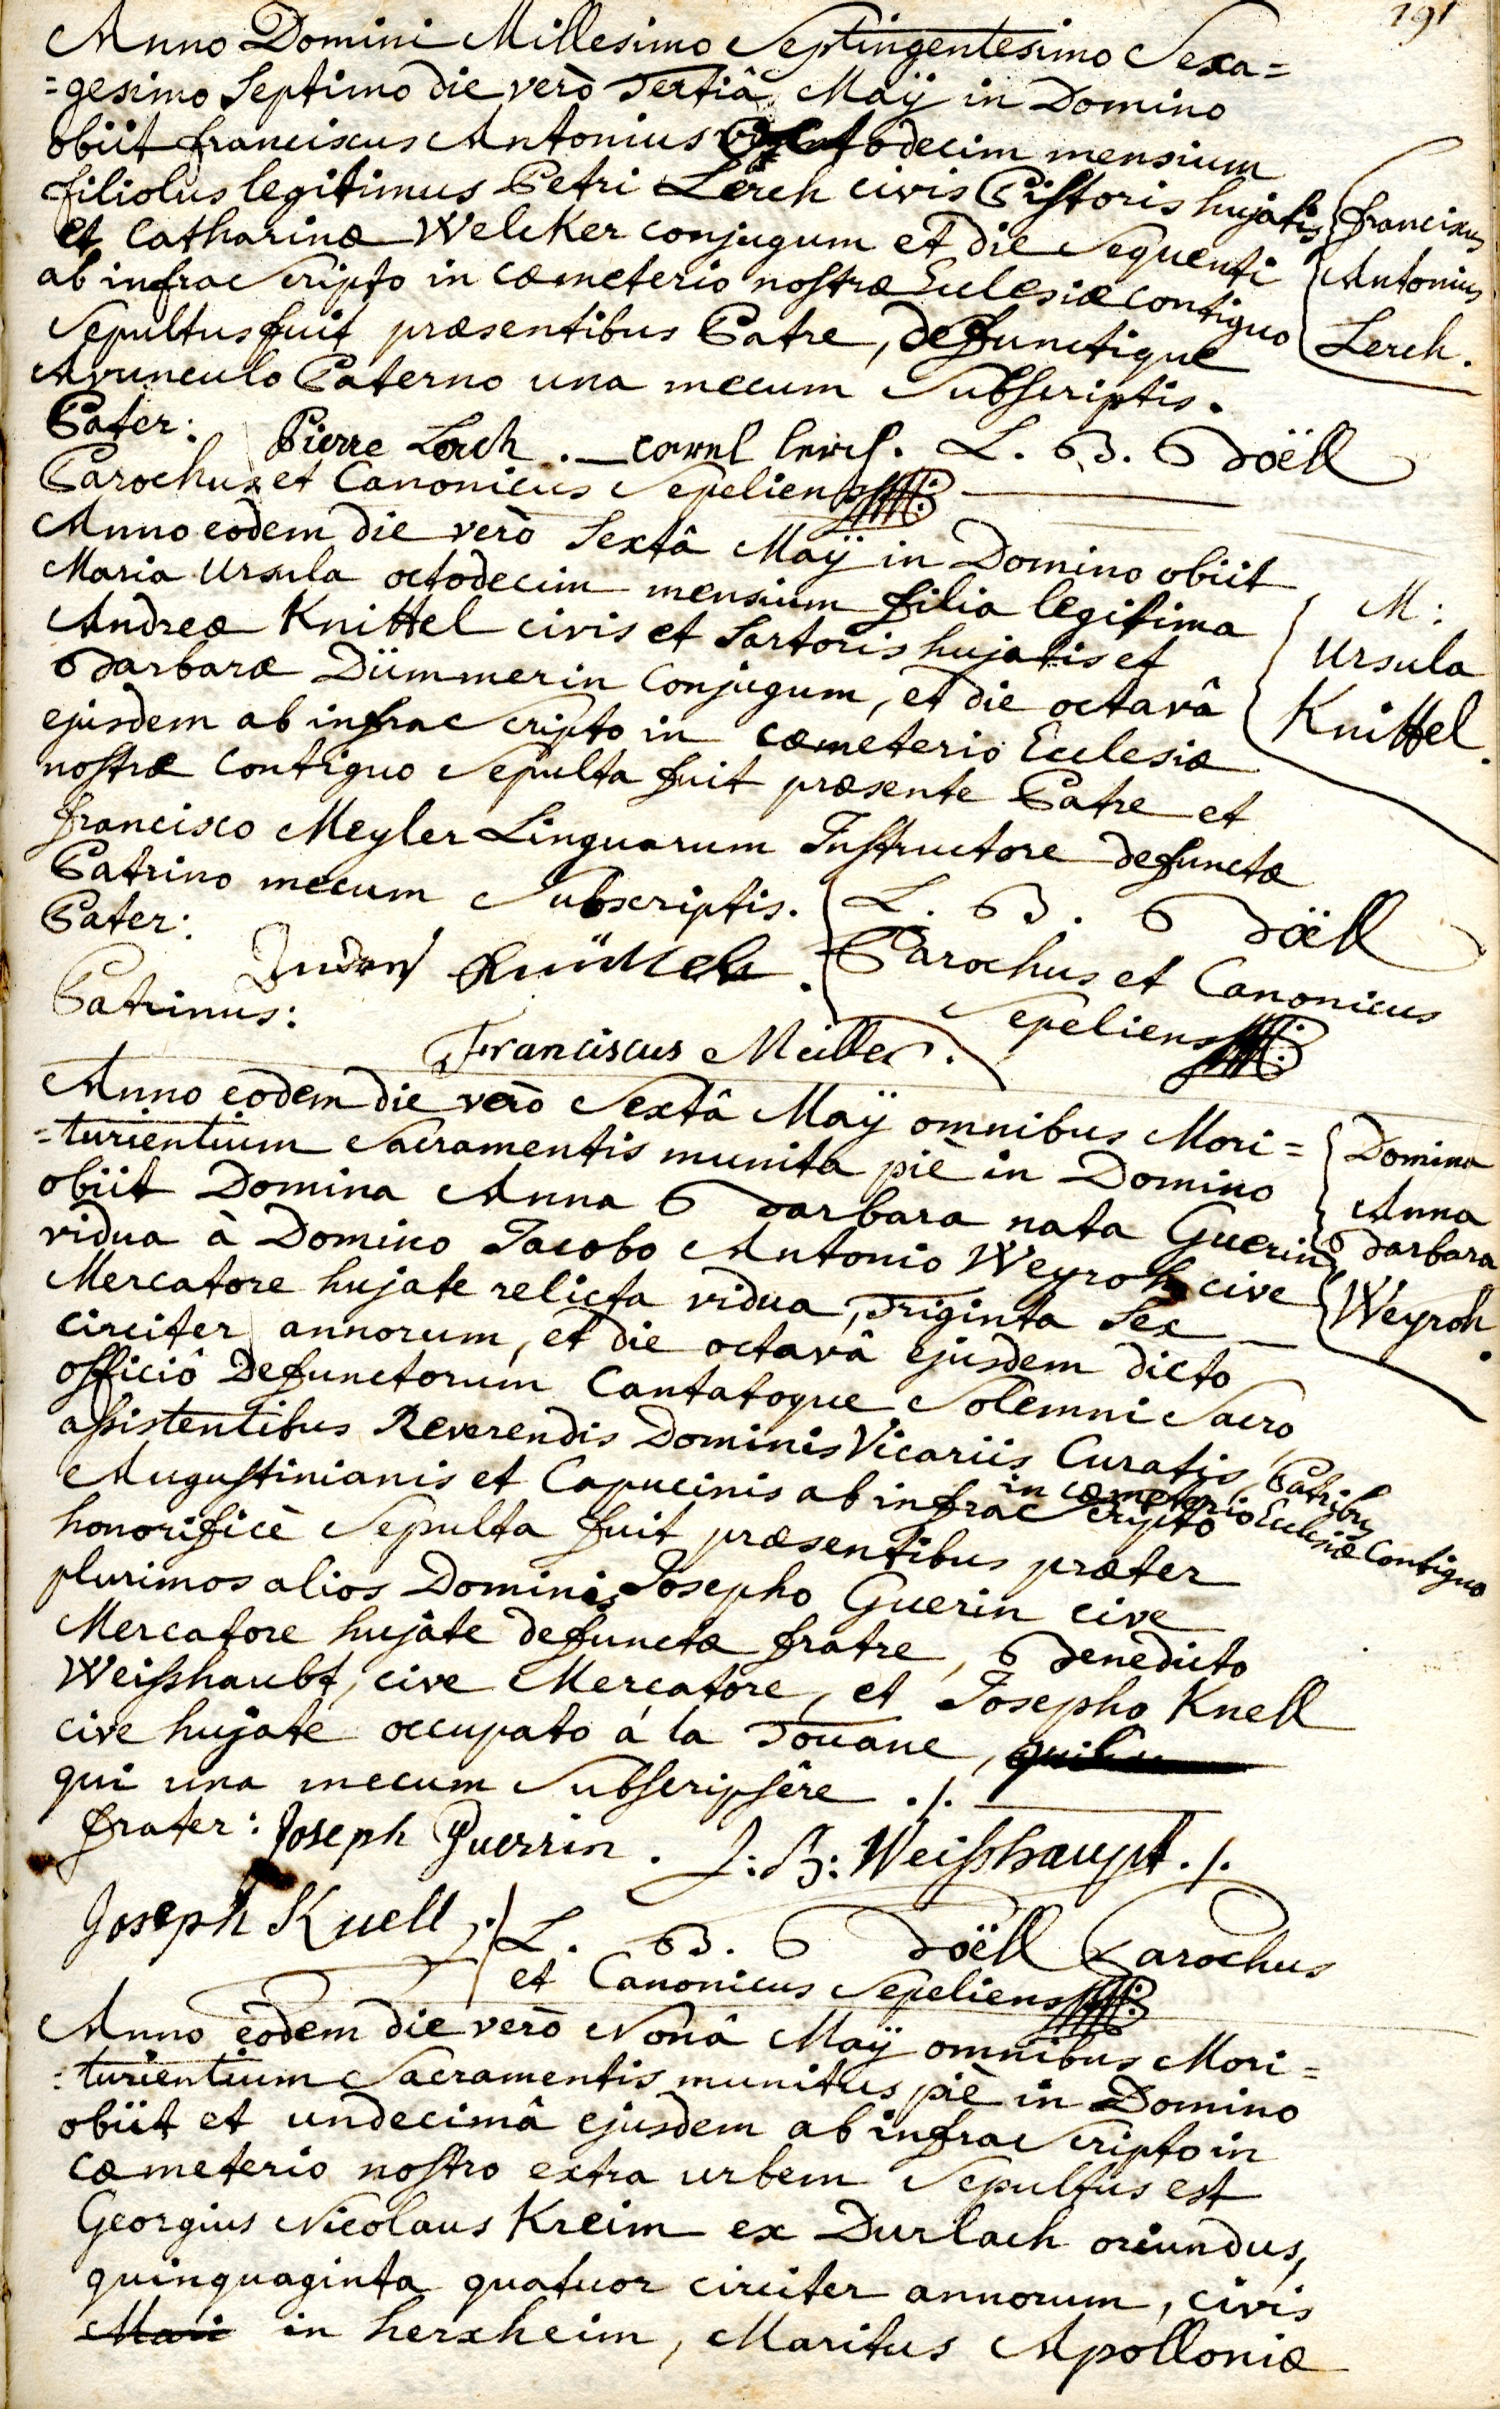 191
Anno Domini Millesimo Septingentesimo Sexa=
=gesimo Septimo die verò Tertiâ Maÿ in Domino
obiit franciscus Antonius octodecim mensium
filiolus legitimus Petri Lerch civis Pistoris hujatis
et Catharinæ Welcker conjugum et die Sequenti
ab infrascripto in cœmeterio nostræ Ecclesiæ contiguo
Sepultus fuit præsentibus Patre, defunctique
Avunculo Paterno una mecum Subscriptis.
franciscus
Antonius
Lerch.
Pater: Pierre Lerch. L. B. Boëll
Parochus et Canonicus Sepeliens
Anno eodem die verò Sextâ Maÿ in Domino obiit
Maria Ursula octodecim mensium filia legitima
Andreæ Knittel civis et Sartoris hujatis et
Barbaræ Dümmerin Conjugum, et die octavâ
ejusdem ab infrascripto in cœmeterio Ecclesiæ
nostræ Contiguo Sepulta fuit præsente Patre et
francisco Meyler Linguarum Instructore defunctæ
Patrino mecum Subscriptis.
M:
Ursula
Knittel.
Pater:
Patrinus:
Franciscus Meiller.
L. B. Boëll
Parochus et Canonicus
Sepeliens
Anno eodem die verò Sextâ Maÿ omnibus Mori=
=turientium Sacramentis munita piè in Domino
obiit Domina Anna Barbara nata Guerin
vidua à Domino Jacobo Antonio Weyroh cive
Mercatore hujate relicta vidua, Triginta Sex
circiter annorum, et die octavâ ejusdem dicto
officiô Defunctorum Cantatoque Solemni Sacro
assistentibus Reverendis Dominis Vicariis Curatis, Patribus
Augustinianis et Capucinis ab infrascripto in cœmeterio Ecclesiæ Contiguo
honorificè Sepulta fuit præsentibus præter
plurimos alios Dominis Josepho Guerin cive
Mercatore hujate defunctæ fratre, Benedicto
Weißhaubt, cive Mercatore, et Josepho Knell
cive hujate occupato á la Douane,
qui una mecum Subscripsêre ./.
Domina
Anna
Barbara
Weyroh.
frater: Joseph Guerrin. J: B: Weißhaupt ./.
Joseph Knell ./. L. B. Boëll Parochus
et Canonicus Sepeliens
Anno eodem die verò Nonâ Maÿ omnibus Mori=
=turientium Sacramentis munitus piè in Domino
obiit et undecimâ ejusdem ab infrascripto in
cœmeterio nostro extra urbem Sepultus est
Georgius Nicolaus Kreim ex Durlach oriundus,
quinquaginta quatuor circiter annorum, civis
Mari in herxheim, Maritus Apolloniæ